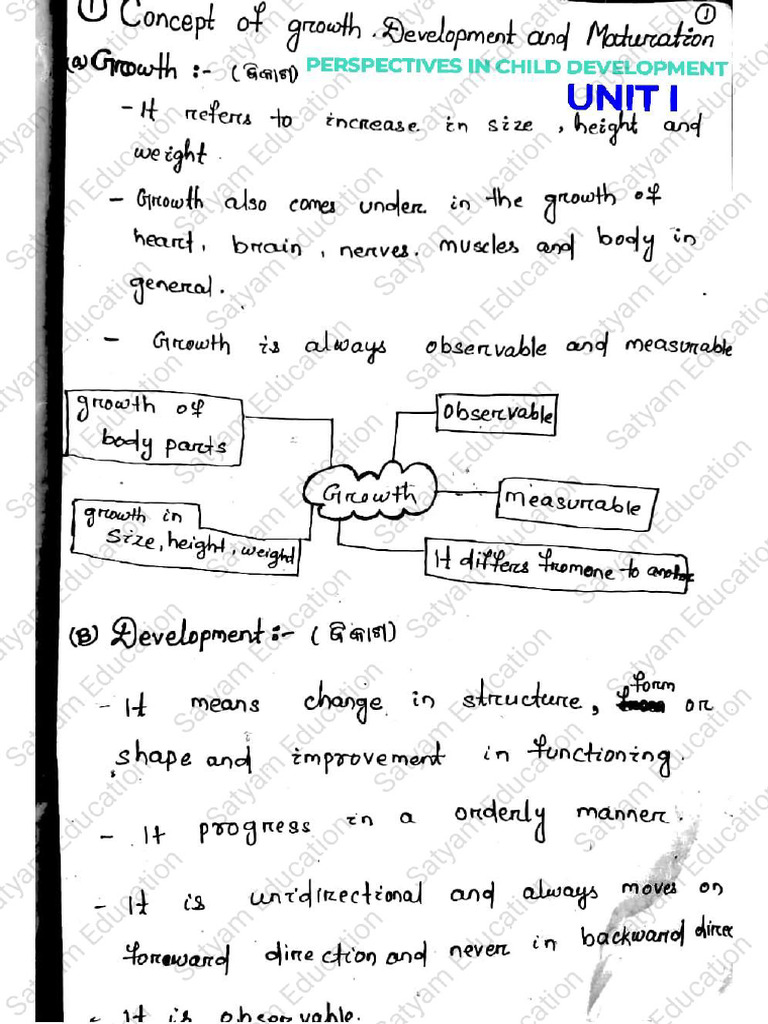 ① Concept of growth, Development and Maturation
①
(a) Growth :- (ବିକାଶ)
PERSPECTIVES IN CHILD DEVELOPMENT
UNIT I
- It refers to increase in size, height and
weight.
- Growth also comes under in the growth of
heart, brain, nerves, muscles and body in
general.
- Growth is always observable and measurable
growth of
body parts
observable
Growth
measurable
growth in
size, height, weight
It differs from one to another
(B) Development :- (ବିକାଶ)
- It means change in structure, form or
shape and improvement in functioning.
- It progress in a orderly manner.
- It is unidirectional and always moves on
foreward direction and never in backward direc
- It is observable.
Satyam Education